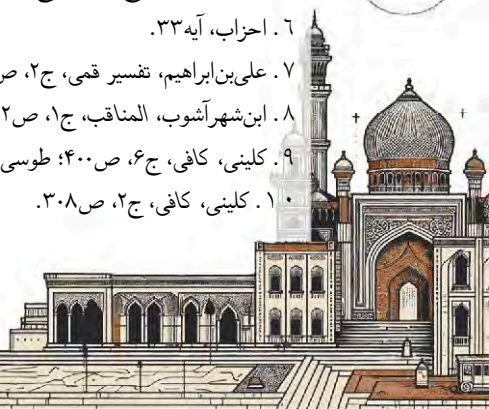 ۶. احزاب، آیه۳۳.
۷. علی‌بن‌ابراهیم، تفسیر قمی، ج۲،
۸. ابن‌شهرآشوب، المناقب، ج۱، ص
۹. کلینی، کافی، ج۶، ص۴۰۰؛ طوسی
۱۰. کلینی، کافی، ج۲، ص۳۰۸.